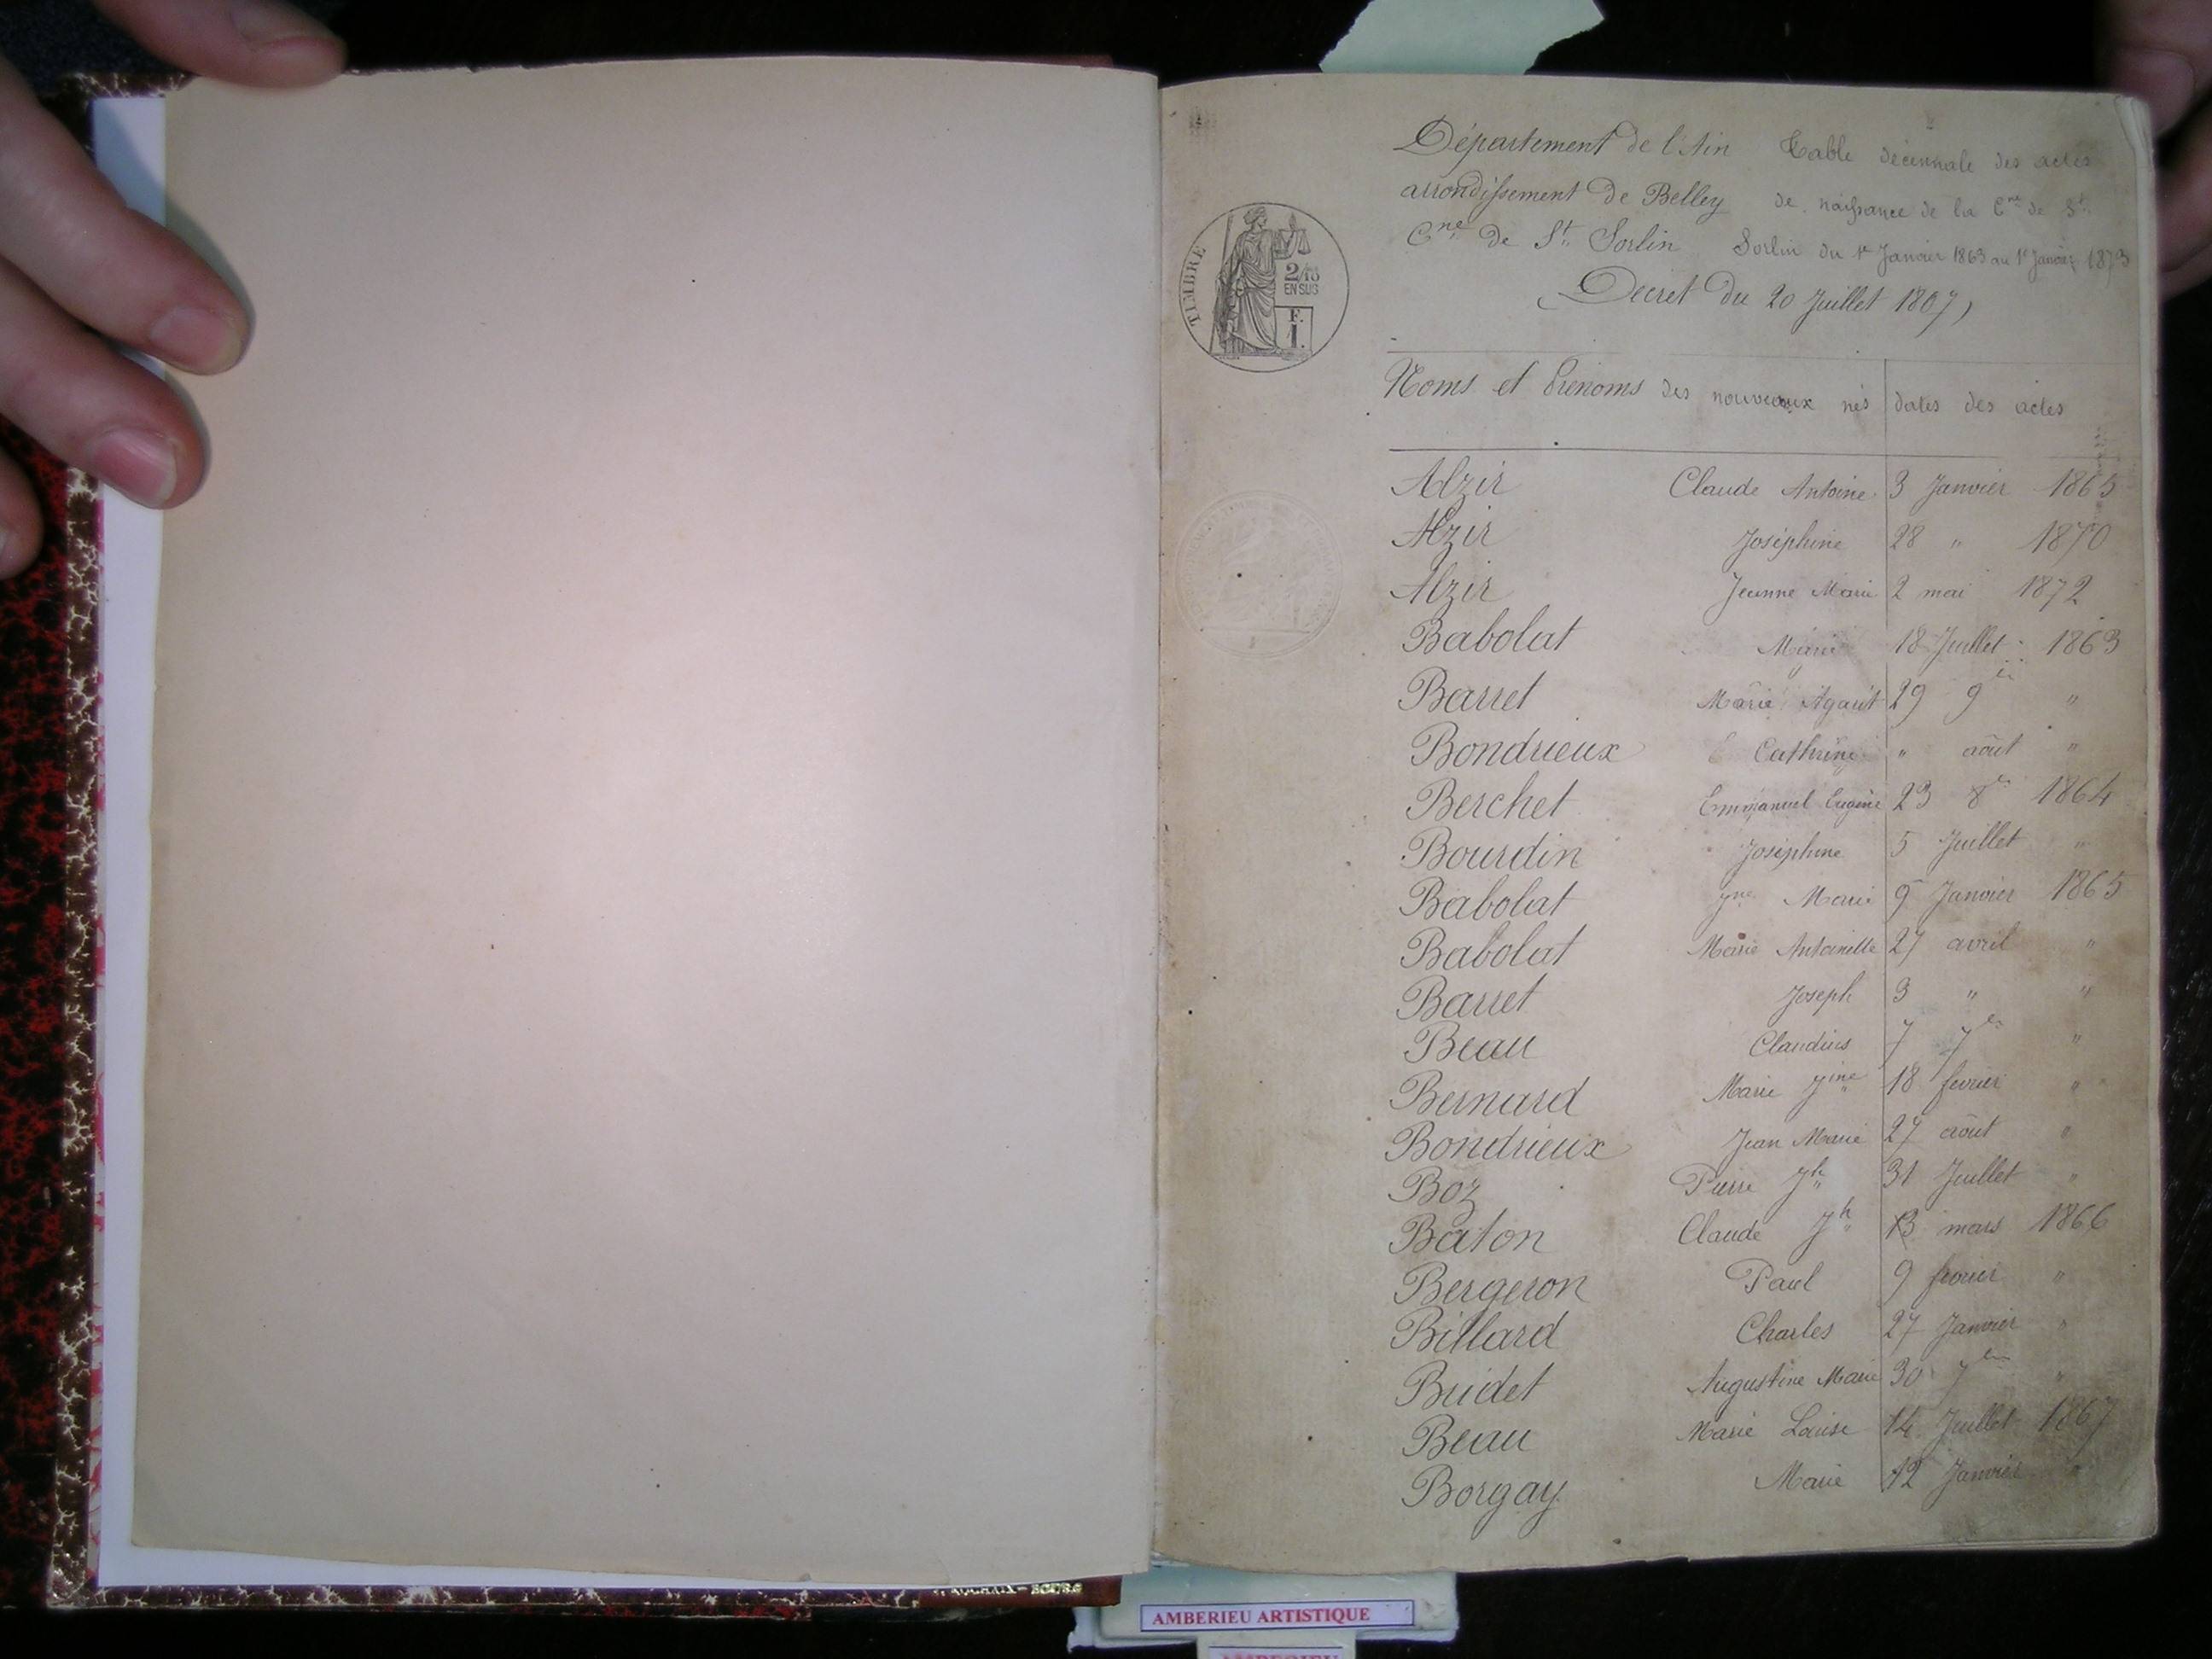 Département de l'Ain Table décennale des actes
arrondissement de Belley de naissance de la Cne de St
Cne de St Sorlin Sorlin du 1er Janvier 1863 au 1er Janvier 1873
(Décret du 20 Juillet 1807)
TIMBRE
2/10
EN SUS
F.
1.
Noms et Prénoms des nouveaux nés dates des actes
Alzir Claude Antoine 3 Janvier 1865
Alzir Joséphine 28 " 1870
Alzir Jeanne Marie 2 mai 1872
Babolat Marie 18 Juillet 1863
Barret Marie 29 9 "
Bondrieux Cathrine " août "
Berchet Emmanuel Eugène 23 8bre 1864
Bourdin Joséphine 5 Juillet "
Babolat Jne Marie 9 Janvier 1865
Babolat Marie Antoinette 27 avril "
Barret Joseph 3 " "
Beau Claudius 7 7bre "
Bernard Marie Jine 18 fevrier "
Bondrieux Jean Marie 27 août "
Boz Pierre Jh 31 Juillet "
Baton Claude Jh 13 mars 1866
Bergeron Paul 9 fevrier "
Billard Charles 27 Janvier "
Bridet Augustine Marie 30 7bre "
Beau Marie Louise 14 Juillet 1867
Borgay Marie 12 Janvier "
AMBERIEU ARTISTIQUE